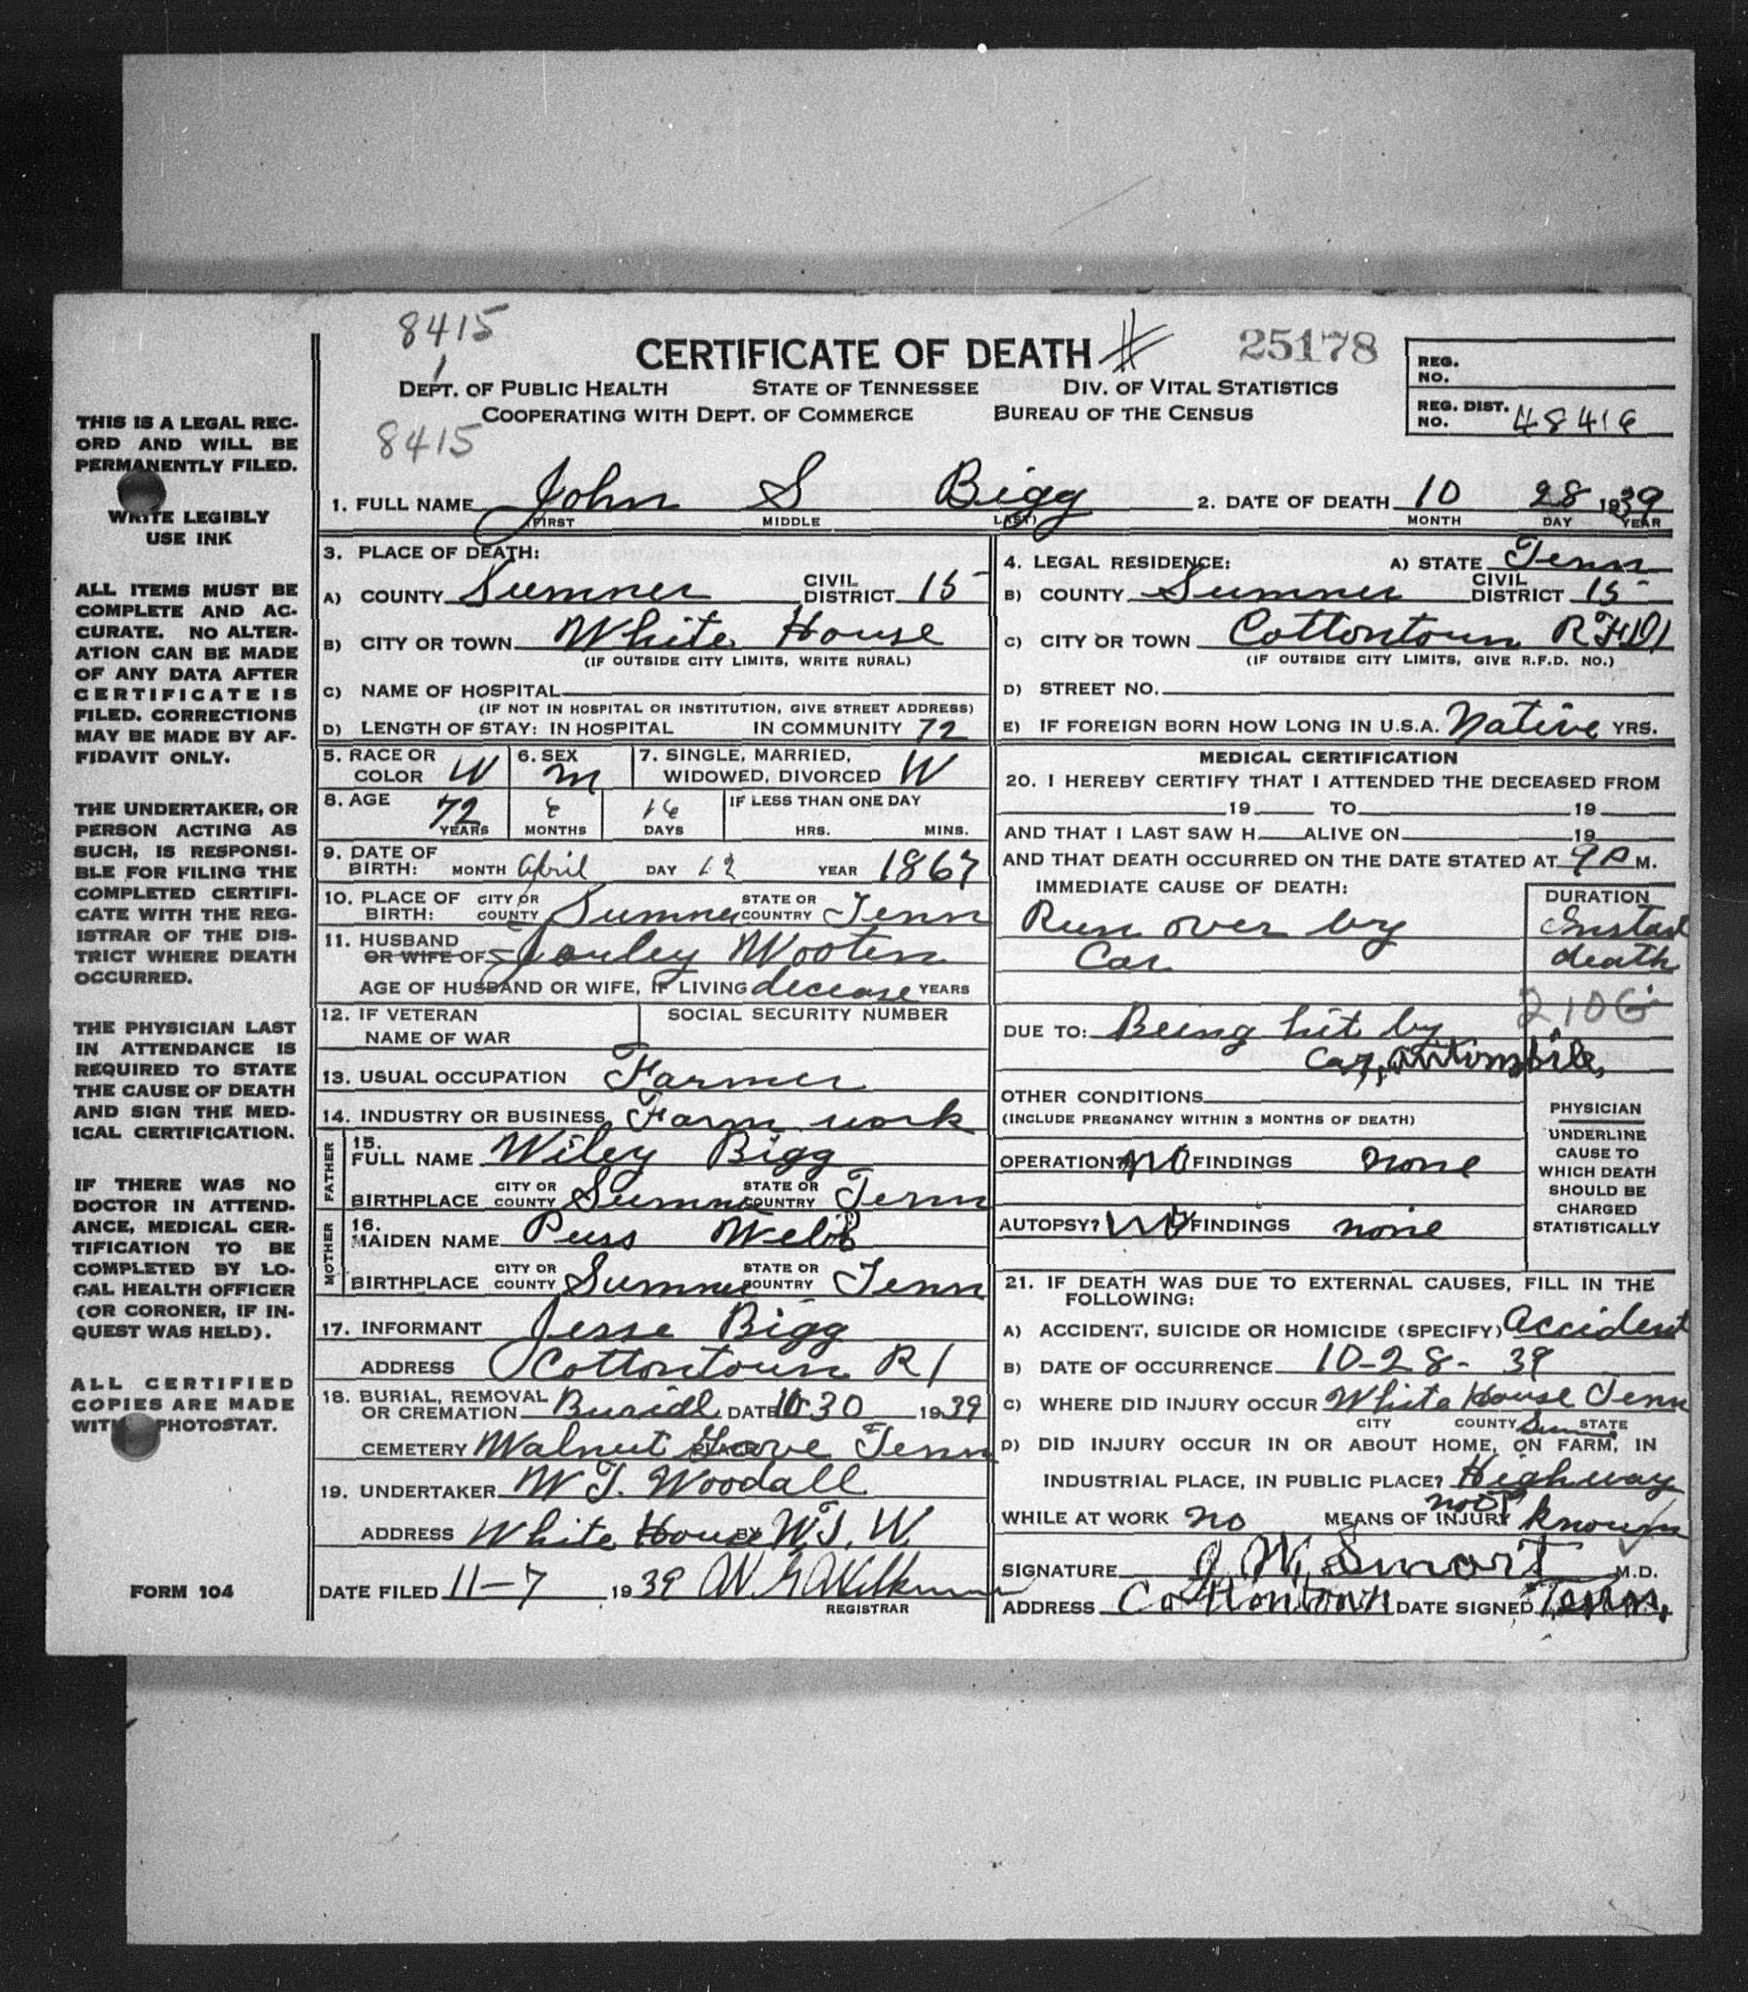 8415
CERTIFICATE OF DEATH #
25178
REG. NO.
DEPT. OF PUBLIC HEALTH STATE OF TENNESSEE DIV. OF VITAL STATISTICS
COOPERATING WITH DEPT. OF COMMERCE BUREAU OF THE CENSUS
REG. DIST. NO. 48416
8415
THIS IS A LEGAL REC-
ORD AND WILL BE
PERMANENTLY FILED.
WRITE LEGIBLY
USE INK
ALL ITEMS MUST BE
COMPLETE AND AC-
CURATE. NO ALTER-
ATION CAN BE MADE
OF ANY DATA AFTER
CERTIFICATE IS
FILED. CORRECTIONS
MAY BE MADE BY AF-
FIDAVIT ONLY.
THE UNDERTAKER, OR
PERSON ACTING AS
SUCH, IS RESPONSI-
BLE FOR FILING THE
COMPLETED CERTIFI-
CATE WITH THE REG-
ISTRAR OF THE DIS-
TRICT WHERE DEATH
OCCURRED.
THE PHYSICIAN LAST
IN ATTENDANCE IS
REQUIRED TO STATE
THE CAUSE OF DEATH
AND SIGN THE MED-
ICAL CERTIFICATION.
IF THERE WAS NO
DOCTOR IN ATTEND-
ANCE, MEDICAL CER-
TIFICATION TO BE
COMPLETED BY LO-
CAL HEALTH OFFICER
(OR CORONER, IF IN-
QUEST WAS HELD).
ALL CERTIFIED
COPIES ARE MADE
WITH PHOTOSTAT.
FORM 104
1. FULL NAME John S Bigg 2. DATE OF DEATH 10 28 1939
(FIRST MIDDLE LAST) MONTH DAY YEAR
3. PLACE OF DEATH:
A) COUNTY Sumner CIVIL DISTRICT 15
B) CITY OR TOWN White House
(IF OUTSIDE CITY LIMITS, WRITE RURAL)
C) NAME OF HOSPITAL
(IF NOT IN HOSPITAL OR INSTITUTION, GIVE STREET ADDRESS)
D) LENGTH OF STAY: IN HOSPITAL IN COMMUNITY 72
4. LEGAL RESIDENCE: A) STATE Tenn
B) COUNTY Sumner CIVIL DISTRICT 15
C) CITY OR TOWN Cottontown RFD1
(IF OUTSIDE CITY LIMITS, GIVE R.F.D. NO.)
D) STREET NO.
E) IF FOREIGN BORN HOW LONG IN U.S.A. Native YRS.
5. RACE OR COLOR W 6. SEX m 7. SINGLE, MARRIED, WIDOWED, DIVORCED W
8. AGE 72 YEARS 6 MONTHS 16 DAYS IF LESS THAN ONE DAY HRS. MINS.
9. DATE OF BIRTH: MONTH April DAY 12 YEAR 1867
10. PLACE OF BIRTH: CITY OR COUNTY Sumner STATE OR COUNTRY Tenn
11. HUSBAND OR WIFE OF Wooten
AGE OF HUSBAND OR WIFE, IF LIVING decease YEARS
12. IF VETERAN NAME OF WAR SOCIAL SECURITY NUMBER
13. USUAL OCCUPATION Farmer
14. INDUSTRY OR BUSINESS Farm work
FATHER
15. FULL NAME Wiley Bigg
BIRTHPLACE CITY OR COUNTY Sumner STATE OR COUNTRY Tenn
MOTHER
16. MAIDEN NAME Puss Webb
BIRTHPLACE CITY OR COUNTY Sumner STATE OR COUNTRY Tenn
17. INFORMANT Jesse Bigg
ADDRESS Cottontown R1
18. BURIAL, REMOVAL OR CREMATION Burial DATE 10 30 1939
CEMETERY Walnut Grove PLACE Tenn
19. UNDERTAKER W T. Woodall
ADDRESS White House BY W. T. W.
DATE FILED 11-7 1939
REGISTRAR
MEDICAL CERTIFICATION
20. I HEREBY CERTIFY THAT I ATTENDED THE DECEASED FROM
19 TO 19
AND THAT I LAST SAW H ALIVE ON 19
AND THAT DEATH OCCURRED ON THE DATE STATED AT 9 P M.
IMMEDIATE CAUSE OF DEATH: DURATION
Run over by
Car
Instad
death
210G
DUE TO: Being hit by
Car, automobile,
OTHER CONDITIONS
(INCLUDE PREGNANCY WITHIN 3 MONTHS OF DEATH)
OPERATION? NO FINDINGS none
AUTOPSY? NO FINDINGS none
PHYSICIAN
UNDERLINE
CAUSE TO
WHICH DEATH
SHOULD BE
CHARGED
STATISTICALLY
21. IF DEATH WAS DUE TO EXTERNAL CAUSES, FILL IN THE
FOLLOWING:
A) ACCIDENT, SUICIDE OR HOMICIDE (SPECIFY) Accident
B) DATE OF OCCURRENCE 10-28-39
C) WHERE DID INJURY OCCUR White House Tenn
CITY COUNTY Sum STATE
D) DID INJURY OCCUR IN OR ABOUT HOME, ON FARM, IN
INDUSTRIAL PLACE, IN PUBLIC PLACE? Highway
WHILE AT WORK no MEANS OF INJURY not known
SIGNATURE J. W. Smart M.D.
ADDRESS Cottontown DATE SIGNED Tenn.